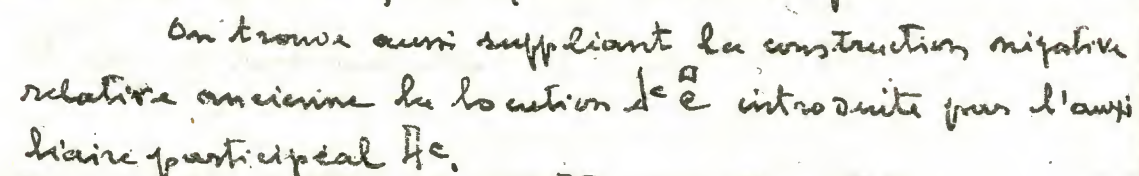 On trouve aussi suppléant la construction négative
relative ancienne la locution introduite par l'auxi
liaire participéal